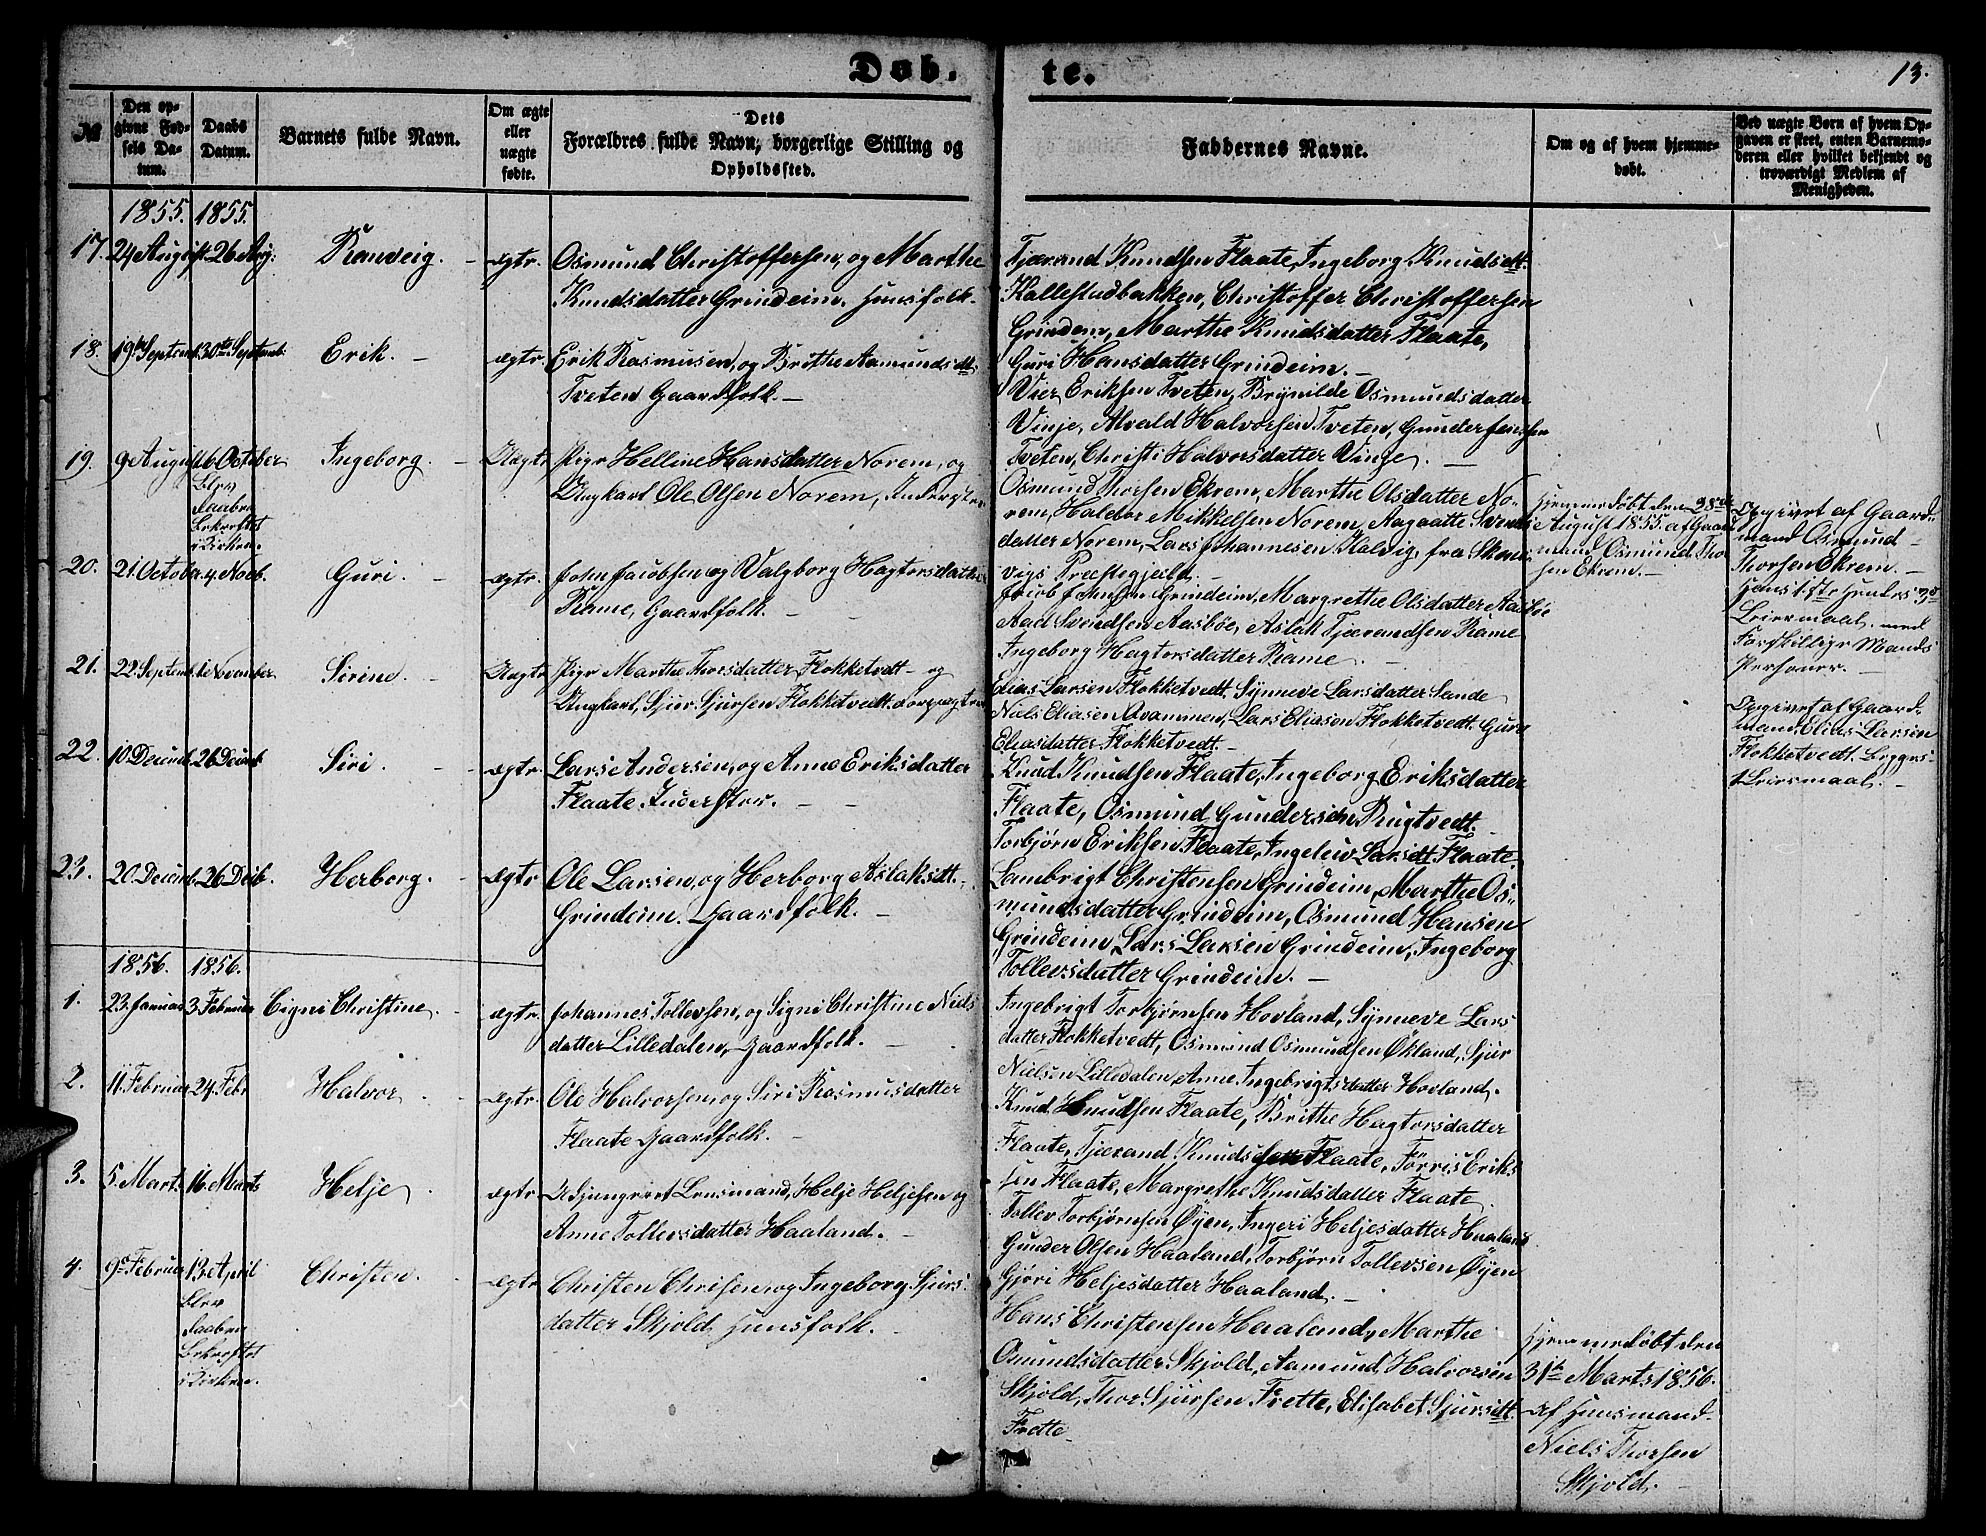 Døb. te. 13.
№
Den op-
givne Fød-
sels Da-
tum.
Daabs
Datum.
Barnets fulde Navn.
Om ægte
eller
uægte
fødte.
Dets
Forældres fulde Navn, borgerlige Stilling og
Opholdssted.
Faddernes Navne.
Om og af hvem hjemme-
døbt.
Ved uægte Børn af hvem Op-
gaven er skeet, enten Barnemo-
deren eller hvilket bekjendt og
troværdigt Medlem af
Menigheden.
1855. 1855.
17. 24 August 26 Aug: Ranveig. ægtr. Osmund Christoffersen, og Marthe
Knudsdatter Grindeim. Huusfolk.
Tjærand Knudsen Flaate, Ingeborg Knudsdtt.
Kallestadbakken, Christoffer Christoffersen
Grindem, Marthe Knudsdatter Flaate,
Guri Hansdatter Grindeim.
18. 19de Septemb. 30te Septemb: Erik. ægtr. Erik Rasmusen, og Brithe Aamundsdtt.
Tveten Gaardfolk.
Vier Eriksen Tveten, Brynilde Osmundsdatter
Vinje, Alvald Halvorsen Tveten, Gunder Jensen
Tveten, Christi Halvorsdatter Vinje.
19. 9 August 16 October Ingeborg. Uægtr. Pige Helline Hansdatter Norem, og
Ungkarl Ole Olsen Norem,
Blev
Daaben
bekræftet
i Kirken.
Osmund Thorsen Ekrem, Marthe Olsdatter No-
rem, Haldor Mikkelsen Norem, Aagaatte Svends-
datter Norem, Lars Johannesen Halvig, fra Skone-
vigs Præstegjæld.
Hjemmedøbt den 28de
August 1855. af Gaard-
mand Osmund Thor-
sen Ekrem.
Opgivet af Gaard-
mand Osmund
Thorsen Ekrem.
Hans 1ste Hendes 3de
Leiermaal. med
Forskjellige Mands
Personer.
20. 21. October 4. Novb. Guri. ægtr. John Jacobsen og Valgborg Hagtorsdatter
Rame, Gaardfolk.
Jacob Johnsen Grindeim, Margrethe Olsdatter Aasbøe
Aad Svendsen Aasbøe, Aslak Tjærandsen Rame
Ingeborg Hagtorsdatter Rame.
21. 22. Septemb. 1 November Sirine. Uægtr. Pige Marthe Thorsdatter Flokketvedt og
Ungkarl, Sjur Sjursen Flokketvedt.
Elias Larsen Flokketvedt. Synneve Larsdatter Sande
Niels Eliasen Lars Eliasen Flokketvedt. Guro
Eliasdatter Flokketvedt.
Opgivet af Gaard-
mand Elias Larsen
Flokketvedt. Begges
1 Leiermaal.
22. 10. Decemb. 26 Decemb. Siri. ægtr. Lars Andersen, og Anne Eriksdatter
Flaate. Inderster.
Knud Knudsen Flaate, Ingeborg Eriksdatter
Flaate, Osmund Gundersen Rugtvedt.
Torbjørn Eriksen Flaate, Ingeleiv Larsdt. Flaate.
23. 20. Decemb. 26 Decb. Herborg. ægtr Ole Larsen, og Herborg Aslaksdtt.
Grindeim. Gaardfolk.
Lambrigt Christensen Grindeim, Marthe Os-
mundsdatter Grindeim, Osmund Hansen
Grindeim, Lars Larsen Grindeim, Ingeborg
Tollevsdatter Grindeim.
1856. 1856.
1. 23. Januar 3. Februar Signi Christine. ægtr. Johannes Tollevsen, og Signi Christine Niels
datter Lilledalen, Gaardfolk.
Ingebrigt Torbjørnsen Hovland, Synneve Lars
datter Flokketvedt, Osmund Osmundsen Økland, Sjur
Nielsen Lilledalen, Anne Ingebrigtsdatter Hovland.
2. 11. Februar 24. Febr. Halvor. ægtr. Ole Halvorsen, og Siri Rasmusdatter
Flaate Gaardfolk.
Knud Knudsen Flaate, Brithe Hagtorsdatter
Flaate, Tjærand Knudsen Flaate, Førris Erik-
sen Flaate, Margrethe Knudsdatter Flaate.
3. 5. Marts 16. Marts Helje. ægtr. Adjungeret Lensmand, Helje Heljesen og
Anne Tollevsdatter Haaland.
Tollev Torbjørnsen Øyen, Ingeri Heljesdatter Haaland
Gunder Olsen Haaland, Torbjørn Tollevsen Øyen
Gjøri Heljesdatter Haaland.
4. 9de Februar 13 April Christen. ægtr. Christen Chrisen, og Ingeborg Sjurs-
datter Skjold, Huusfolk.
Blev
Daaben
bekræftet
i Kirken.
Hans Christensen Haaland, Marthe
Osmundsdatter Skjold, Aamund Halvorsen
Skjold, Thor Sjursen Frette, Elisabet Sjursdtt.
Frette
Hjemmedøbt den
31te Marts 1856.
af Huusmand
Niels Thorsen
Skjold.